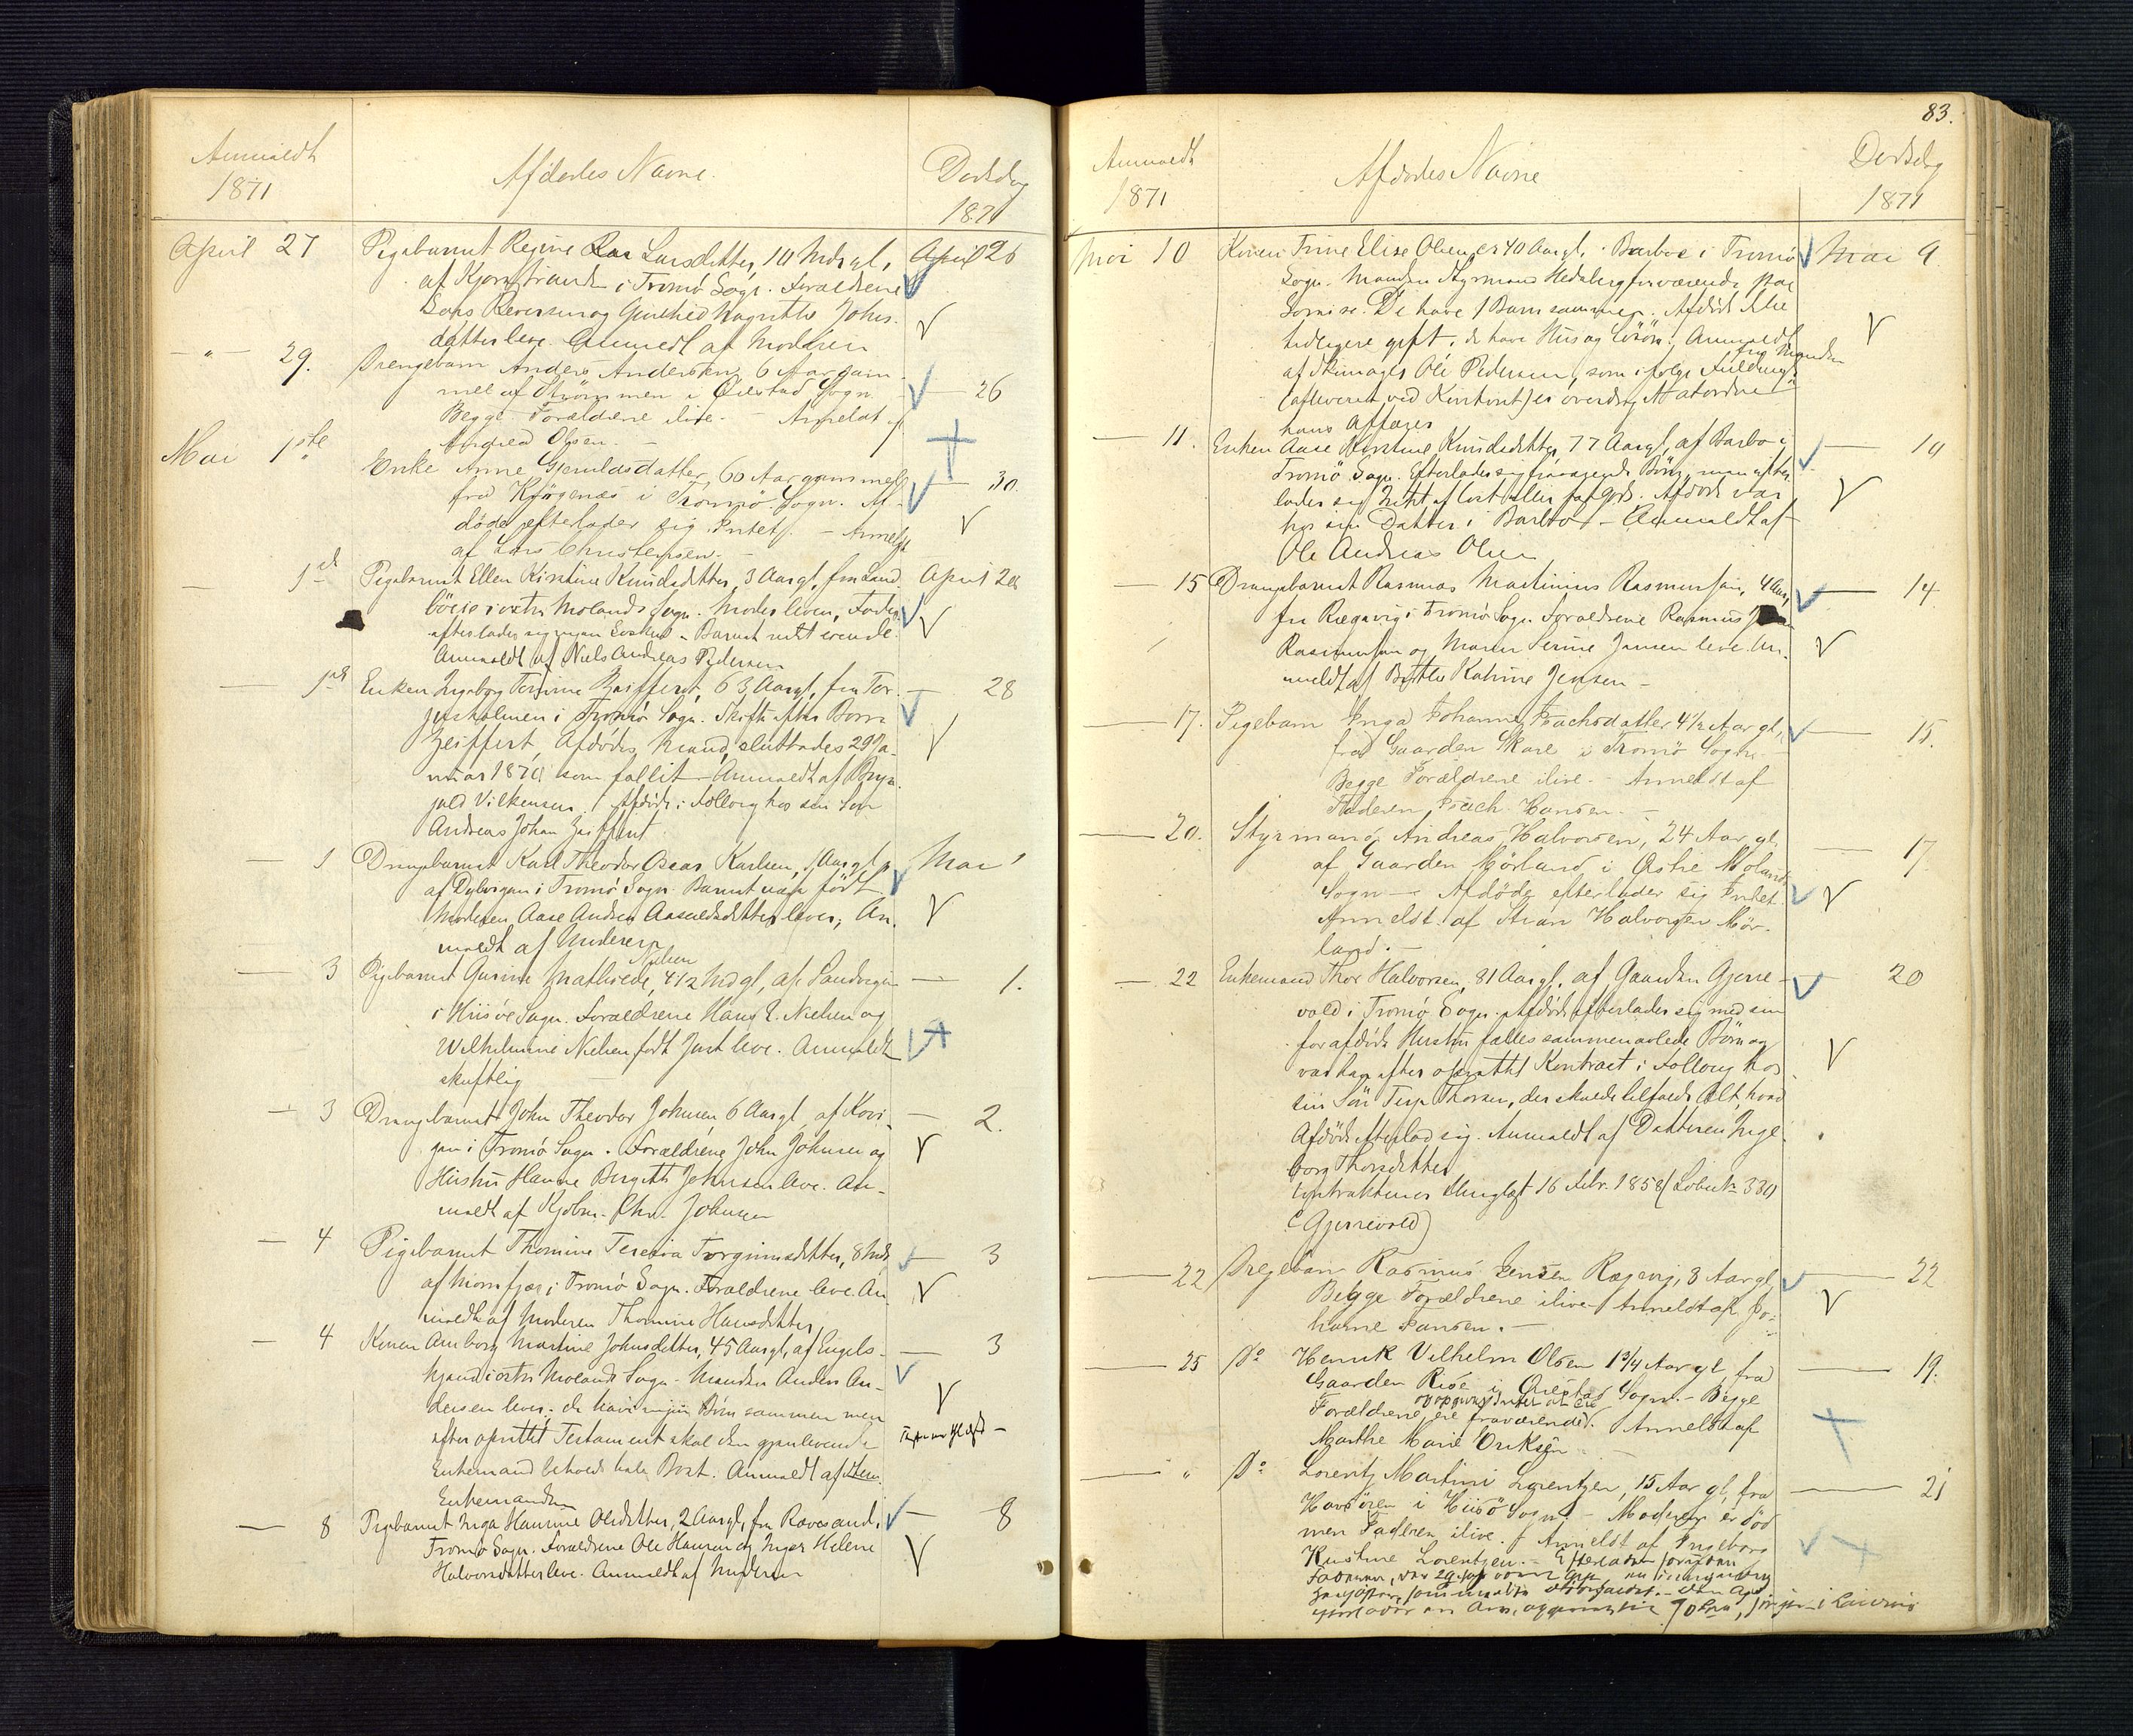 Anmeldt
1871
Afdødes Navne.
Dødsdag
1871
April 27 Pigebarnet Regine Larsdatter, 10 Mdr gl, April 26
af Kjørrstranden i Tromø Sogn. Forældrene
Lars Reiersen og Gunhild Magrethe Johns-
datter leve. Anmeldt af Moderen
— " — 29. Drengebarn Anders Andersen 6 Aar gam-
mel af Strømmen i Øiestad Sogn — 26
Begge Forældrene ilive. — Anmeldt af
Andrea Olsen. —
Mai 1ste Enke Anne Gjeruldsdatter, 60 Aar gammel — 30.
fra Kjørgenæs i Tromø Sogn. Af-
døde efterlader sig Intet. — Anmeldt
af Lars Christensen. —
— 1ste Pigebarnet Ellen Kirstine Knudsdatter, 3 Aar gl, fra Land- April 28
böe i østre Molands Sogn. Moder leven, Fader
efterlader sig ingen — Barnet intet eiende.
Anmeldt af Niels Andreas Pedersen
— 1ste Enken Ingeborg Zeiffert, 63 Aar gl, fra Tor- — 28
jusholmen i Tromø Sogn. Skifte efter
Zeiffert, Afdødes Mand, sluttedes 29 Ja-
nuar 1870 som fallit — Anmeldt af Bryn-
juld Vilkensen. Afdøde i Folloug hos sin Søn
Andreas Johan Zeiffert
— 1 Drengebarnet Karl Theodor Oscar Karlsen, 1 Aar gl, Mai 1
af Dybvigen i Tromø Sogn. Barnet uægte født
Moderen Aase Andrea Aaneldsdatter lever; An-
meldt af Moderen
Nielsen
— 3 Pigebarnet Gurine Mathilde, 4 1/2 Md gl, af Sandvigen — 1.
i Hisöe Sogn. Forældrene Hans E. Nielsen og
Wilhelmine Nielsen født Just leve. Anmeldt
skriftlig
— 3 Drengebarnet John Theodor Johnsen 6 Aar gl, af Kovi- — 2.
gen i Tromø Sogn. Forældrene John Johnsen og
Hustru Hanne Birgitte Johnsen leve. An-
meldt af Kjøbm. Chr. Johnsen
— 4 Pigebarnet Thomine Teresia Torgrimsdatter, 8 Mdr — 3
af Mornfjær i Tromø Sogn. Forældrene leve. An-
meldt af Moderen Thomine Hansdatter
— 4 Konen Anborg Martine Johnsdatter, 45 Aar gl, af Engels- — 3
hjand i østre Moland Sogn — Manden Anders An-
dersen lever; de have ingen Børn sammen men
efter oprettet Testament skal den gjenlevende
Enkemand beholde hele Boet. Anmeldt af
Enkemanden
— 8 Pigebarnet Inga Hansine Olesdatter, 2 Aar gl, fra Rævesand, — 8
Tromø Sogn. Forældrene Ole Hansen og Inger Helene
Halvorsdatter leve. Anmeldt af Moderen
83.
Anmeldt
1871
Afdødes Navne
Dødsdag
1871
Mai 10 Konen Trine Elise Olsen, ca 40 Aar gl, i Barboe i Tromø Mai 9
Sogn. Manden Styrmand Hedeberg fraværende paa
Somreise. De have 1 Barn sammen. Afdøde ikke
tidligere gift, de have Hus og Løsøre; Anmeldt
af Skimager Ole Pedersen, som ifølge Fuldmagt fra Manden
(afleveret ved Kontoret) er overdraget at ordne
hans Affærer
— 11. Enken Aase Kirstine Knudsdatter, 77 Aar gl, af Barbo i — 10
Tromø Sogn. Efterlader sig fraværende Børn, men efter-
lader sig Intet af løst eller fast Gods. Afdøde var
hos sin Datter i Barbo — Anmeldt af
Ole Andreas Olsen
— 15 Drengebarnet Rasmus Martinius Rasmussen, 4 Aar, — 14
fra Rægevig i Tromø Sogn. Forældrene Rasmus
Rasmussen og Maren Serine Jensen leve. An-
meldt af Birthe Katrine Jensen —
— 17. Pigebarn Inga Johanne Isachsdatter 4 1/2 Aar gl, — 15.
fra Gaarden Skare i Tromø Sogn —
Begge Forældrene ilive. — Anmeldt af
Faderen Isach Hansen. —
— 20. Styrmand Andreas Halvorsen, 24 Aar gl, — 17
af Gaarden Mørland i Østre Moland
Sogn — Afdøde efterlader sig Intet.
Anmeldt af Halvorsen Mør-
land. —
— 22 Enkemand Thor Halvorsen, 81 Aar gl. af Gaarden Gjerre- — 20
vold i Tromø Sogn. Afdøde efterlader sig med sin
forafdøde Hustru fælles sammenavlede Børn og
var han efter oprettet Kontract i Folloug hos
sin Søn Terje Thorsen, der skulde tilfalde Alt, hvad
Afdøde efterlod sig. Anmeldt af Datteren Inge-
borg Thorsdatter
Contrakten er thinglæst 16 Febr. 1858 (Løbe No 330
C Gjerrevold)
— 22 Drengebarn Rasmus Jensen Rægevig, 3 Aar gl, — 22
Begge Forældrene ilive. Anmeldt af Jo-
hanne Jansen. —
— 25 Do Henrik Vilhelm Olsen 1 3/4 Aar gl, fra — 19.
Gaarden Rise i Øiestad Sogn. — Begge
Forældrene ere fraværende. Anmeldt af
Marthe Marie Eriksen
— " Do Lorentz Martini Lorentzen, 15 Aar gl, fra — 21
Havsøren i Hisö Sogn. — Moderen er død
men Faderen ilive. Anmeldt af Ingeborg
Kirstine Lorentzen. —